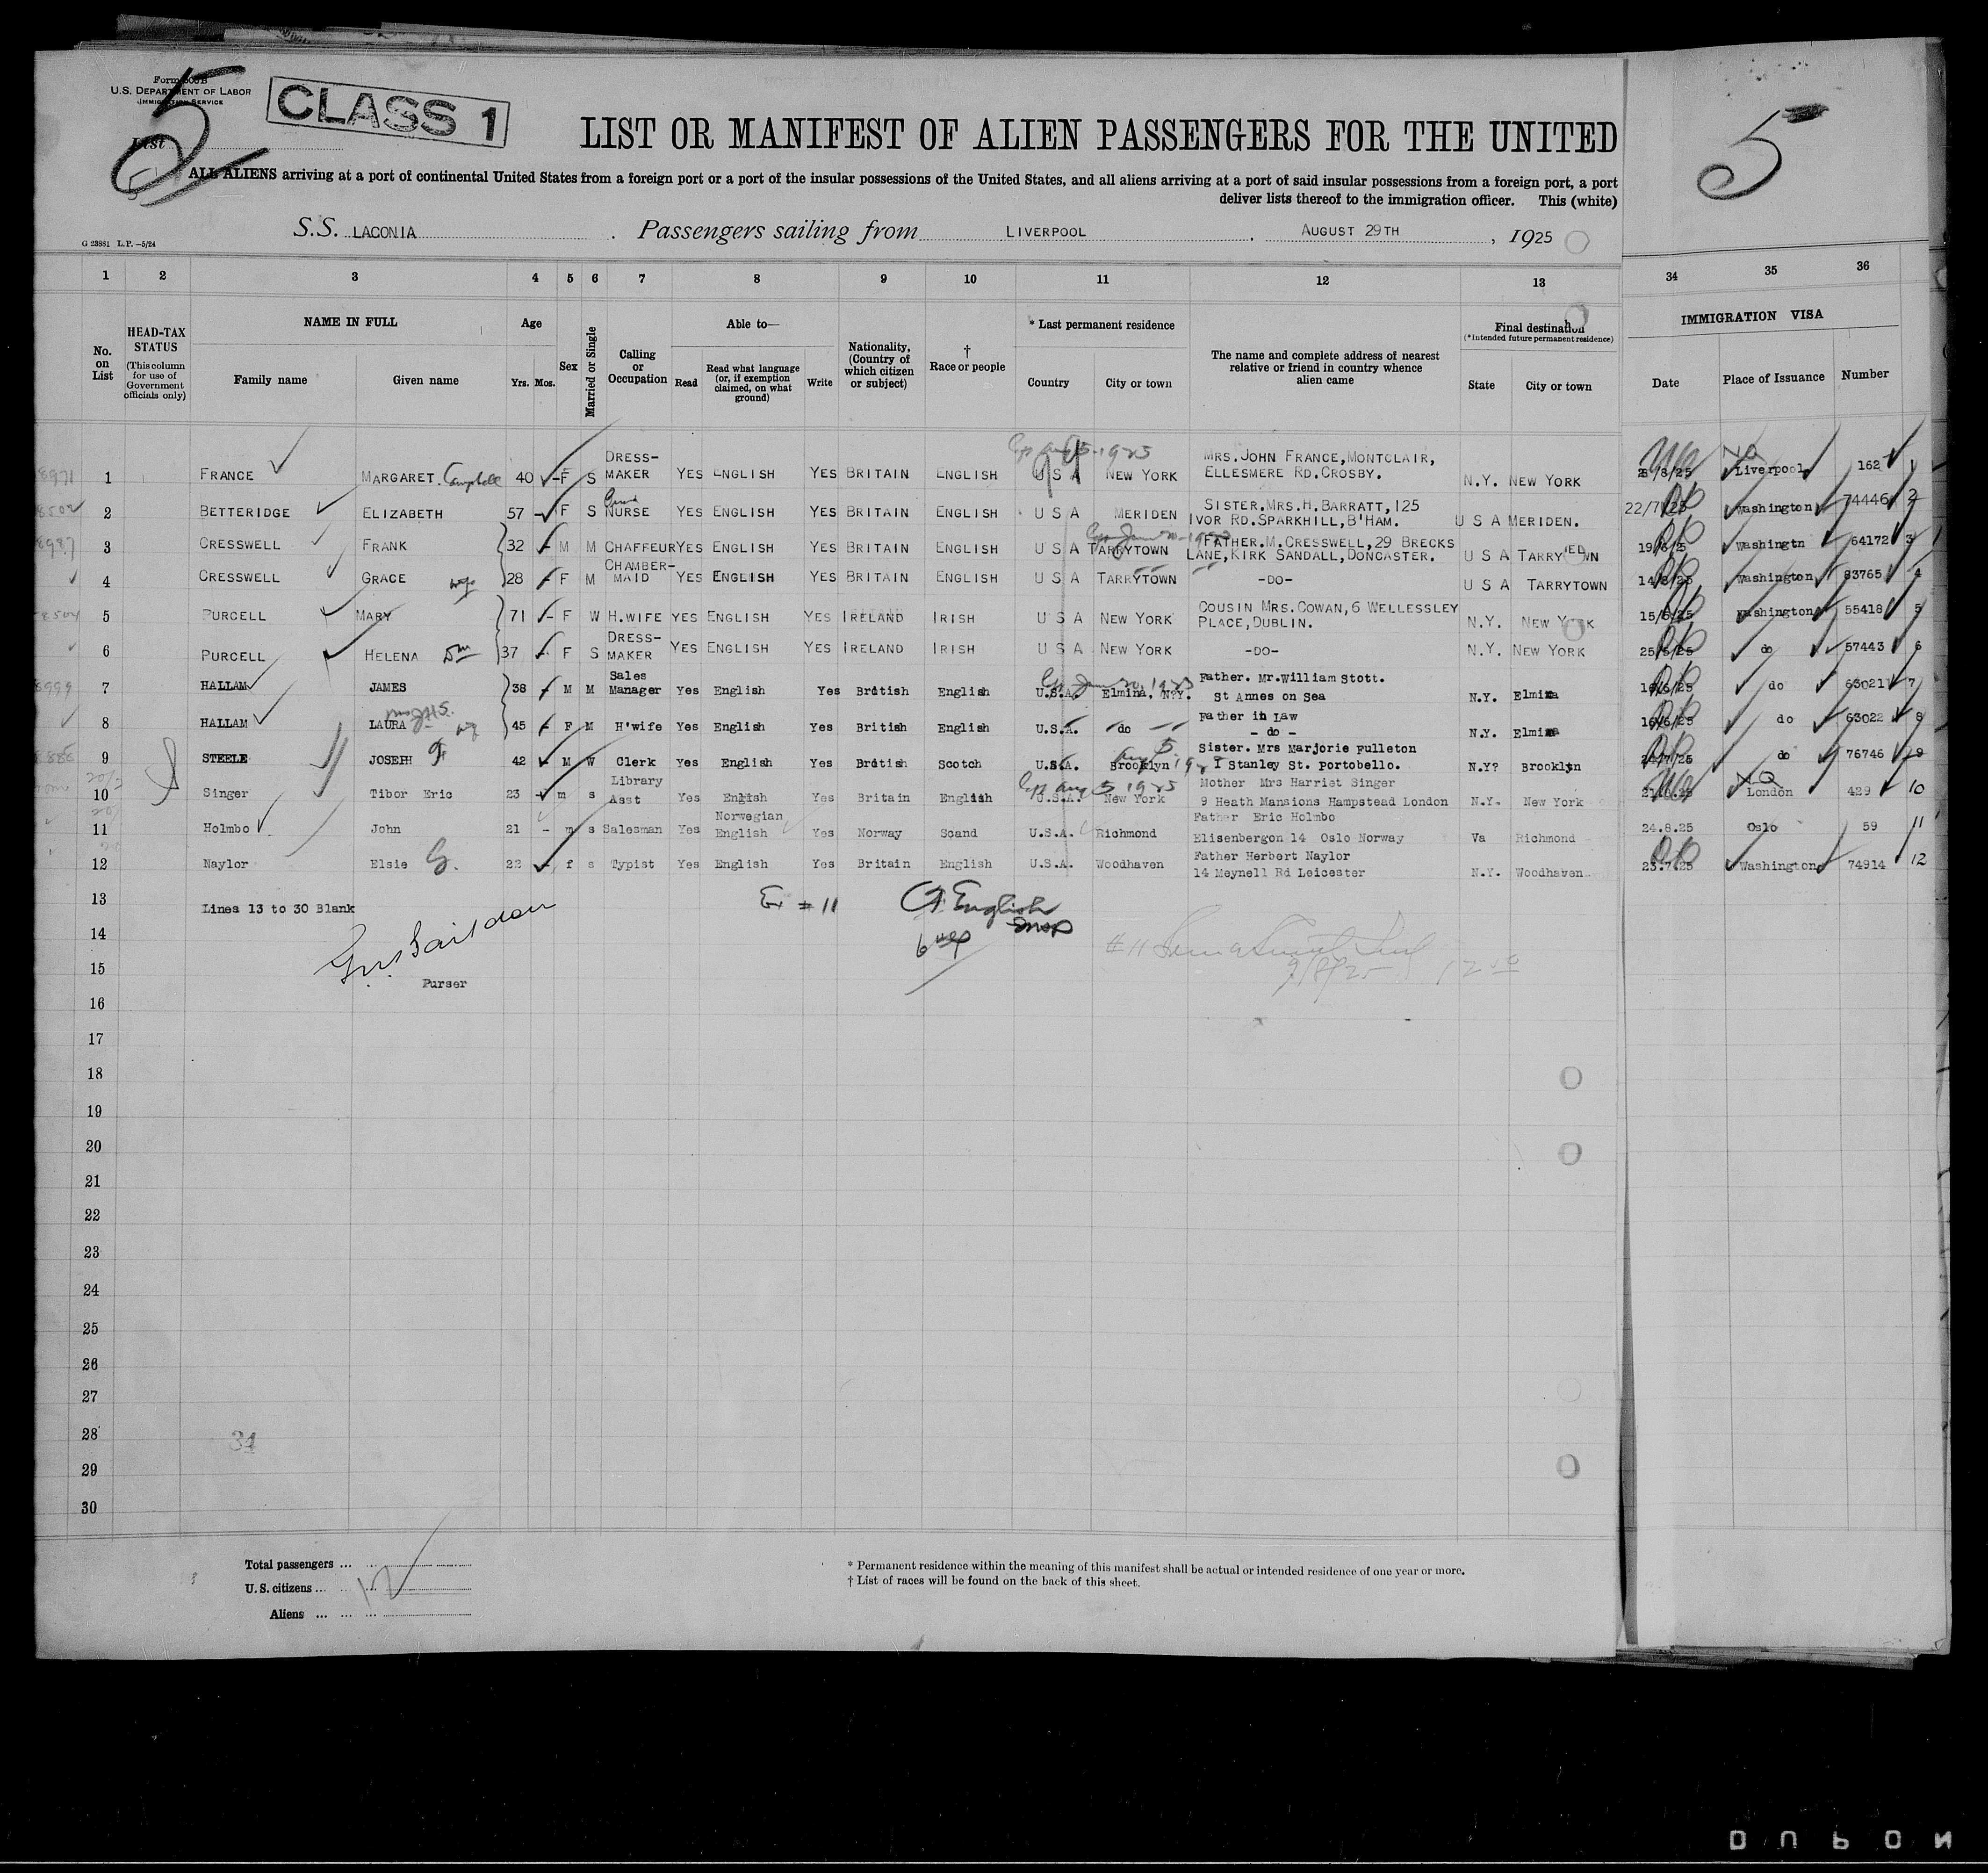 Form 500 B
U.S. DEPARTMENT OF LABOR
IMMIGRATION SERVICE
CLASS 1
5
5
List
LIST OR MANIFEST OF ALIEN PASSENGERS FOR THE UNITED
ALL ALIENS arriving at a port of continental United States from a foreign port or a port of the insular possessions of the United States, and all aliens arriving at a port of said insular possessions from a foreign port, a port
deliver lists thereof to the immigration officer. This (white)
S.S. LACONIA Passengers sailing from LIVERPOOL, AUGUST 29TH, 1925
G 23881 L.P.—5/24
1 2 3 4 5 6 7 8 9 10 11 12 13 34 35 36
No. on List
HEAD-TAX STATUS (This column for use of Government officials only)
NAME IN FULL
Family name Given name
Age
Yrs. Mos.
Sex
Married or Single
Calling or Occupation
Able to—
Read Read what language (or, if exemption claimed, on what ground) Write
Nationality, (Country of which citizen or subject)
† Race or people
* Last permanent residence
Country City or town
The name and complete address of nearest relative or friend in country whence alien came
Final destination
(*Intended future permanent residence)
State City or town
IMMIGRATION VISA
Date Place of Issuance Number
1 FRANCE MARGARET. Campbell 40 F S DRESS-MAKER YES ENGLISH YES BRITAIN ENGLISH U S A NEW YORK MRS. JOHN FRANCE, MONTCLAIR, ELLESMERE RD. CROSBY. N.Y. NEW YORK /8/25 Liverpool 162 1
2 BETTERIDGE ELIZABETH 57 F S NURSE YES ENGLISH YES BRITAIN ENGLISH U S A MERIDEN SISTER. MRS. H. BARRATT, 125 IVOR RD. SPARKHILL, B'HAM. U S A MERIDEN. 22/7/25 Washington 74446 2
3 CRESSWELL FRANK 32 M M CHAFFEUR YES ENGLISH YES BRITAIN ENGLISH U S A TARRYTOWN FATHER. M. CRESSWELL, 29 BRECKS LANE, KIRK SANDALL, DONCASTER. U S A TARRYTOWN 19/6/25 Washingtn 64172 3
4 CRESSWELL GRACE wife 28 F M CHAMBER-MAID YES ENGLISH YES BRITAIN ENGLISH U S A TARRYTOWN -DO- U S A TARRYTOWN 14/8/25 Washington 83765 4
5 PURCELL MARY 71 F W H.WIFE YES ENGLISH YES IRELAND IRISH U S A NEW YORK COUSIN MRS. COWAN, 6 WELLESSLEY PLACE, DUBLIN. N.Y. NEW YORK 15/5/25 Washington 55418 5
6 PURCELL HELENA 37 F S DRESS-MAKER YES ENGLISH YES IRELAND IRISH U S A NEW YORK -DO- N.Y. NEW YORK 25/5/25 do 57443 6
7 HALLAM JAMES 38 M M Sales Manager Yes English Yes British English U.S.A. Elmira. N.Y. Father. Mr. William Stott. St Annes on Sea N.Y. Elmira 16/6/25 do 63021 7
8 HALLAM LAURA 45 F M H'wife Yes English Yes British English U.S.A. do Father in Law - do - N.Y. Elmira 16/6/25 do 63022 8
9 STEELE JOSEPH 42 M W Clerk Yes English Yes British Scotch U.S.A. Brooklyn Sister. Mrs Marjorie Fulleton 1 Stanley St. Portobello. N.Y? Brooklyn /7/25 do 76746 9
10 Singer Tibor Eric 23 m s Library Asst Yes English Yes Britain English U.S.A. New York Mother Mrs Harriet Singer 9 Heath Mansions Hampstead London N.Y. New York London 429 10
11 Holmbo John 21 - m s Salesman Yes Norwegian English Yes Norway Scand U.S.A. Richmond Father Eric Holmbo Elisenbergon 14 Oslo Norway Va Richmond 24.8.25 Oslo 59 11
12 Naylor Elsie G. 22 f s Typist Yes English Yes Britain English U.S.A. Woodhaven Father Herbert Naylor 14 Meynell Rd Leicester N.Y. Woodhaven 23.7.25 Washington 74914 12
13 Lines 13 to 30 Blank
14
15
Purser
16
17
18
19
20
21
22
23
24
25
26
27
28
29
30
Total passengers ...
U. S. citizens ... 12
Aliens ...
* Permanent residence within the meaning of this manifest shall be actual or intended residence of one year or more.
† List of races will be found on the back of this sheet.